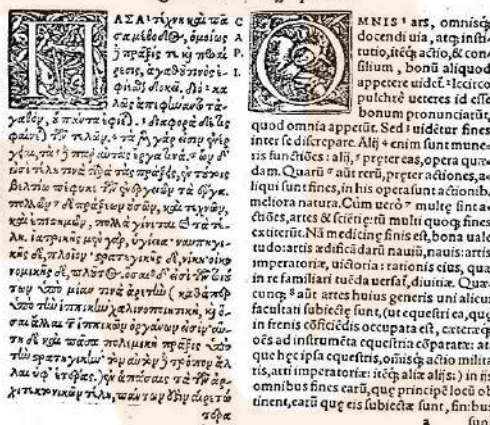 ΠΑΣΑ τέχνη καὶ πᾶ
σα μέθοδος, ὁμοίως
πρᾶξίς τε καὶ προαί
ρεσις, ἀγαθοῦ τινὸς ἐ-
φίεσθαι δοκεῖ. διὸ κα
λῶς ἀπεφήναντο τἀ-
γαθὸν, οὗ πάντα ἐφίεται. διαφορὰ δέ τις
φαίνεται τῶν τελῶν. τὰ μὲν γάρ εἰσιν ἐνέρ
γειαι, τὰ παρ' αὐτὰς ἔργα τινά. ὧν δ'
εἰσὶ τέλη τινὰ παρὰ τὰς πράξεις, ἐν τούτοις
βελτίω πέφυκε τῶν ἐνεργειῶν τὰ ἔργα.
πολλῶν δὲ πράξεων οὐσῶν, καὶ τεχνῶν,
καὶ ἐπιστημῶν, πολλὰ γίνεται καὶ τὰ τέ-
λη. ἰατρικῆς μὲν γὰρ, ὑγίεια· ναυπηγι-
κῆς δὲ, πλοῖον· στρατηγικῆς δὲ, νίκη· οἰκο
νομικῆς δὲ, πλοῦτος. ὅσαι δ' εἰσὶ τῶν τοιού
των ὑπὸ μίαν τινὰ ἀρετὴν (καθάπερ
ὑπὸ τὴν ἱππικὴν χαλινοποιητικὴ, καὶ ὅ-
σαι ἄλλαι τῶν ἱππικῶν ὀργάνων εἰσίν· αὕ-
τη δὲ καὶ πᾶσα πολεμικὴ πρᾶξις ὑπὸ
τὴν στρατηγικήν· τὸν αὐτὸν τρόπον ἄλ
λαι ὑφ' ἑτέρας.) ἐν ἁπάσαις τὰ τῶν ἀρ-
χιτεκτονικῶν τέλη, πάντων ἐστὶν αἱρετώ
τερα
C
A
P.
I.
OMNIS ars, omnisq;
docendi uia, atq; insti-
tutio, itéq; actio, & con-
silium, bonū aliquod
appetere uidet̃. Iccirco
pulchrè ueteres id esse
bonum pronunciarūt,
quod omnia appetūt. Sed uidētur fines
inter se discrepare. Alij enim sunt mune-
ris functiões: alij, præter eas, opera quæ-
dam. Quarū aūt rerū, præter actiones, a-
liqui sunt fines, in his opera sunt actionib.
meliora natura. Cùm uerò multę sint a-
ctiões, artes & sciētię: tū multi quoq; fines
extiterūt. Nā medicinę finis est, bona uale
tudo: artis ædificādarū nauiū, nauis: artis
imperatoriæ, uictoria: rationis eius, quæ
in re familiari tuēda uersat̃, diuitiæ. Quæ-
cunq; aūt artes huius generis uni alicui
facultati subiectę sunt, (ut equestri ea, quę
in frenis cōficiēdis occupata est, cæteræq;
oēs ad instrumēta equestria cōparatæ: at-
que hęc ipsa equestris, omisq; actio milita
ris, arti imperatoriæ: itéq; aliæ alijs:) in ijs
omnibus fines earū, quę principē locū ob
tinent, earū quę eis subiectæ sunt, fin: bus
a